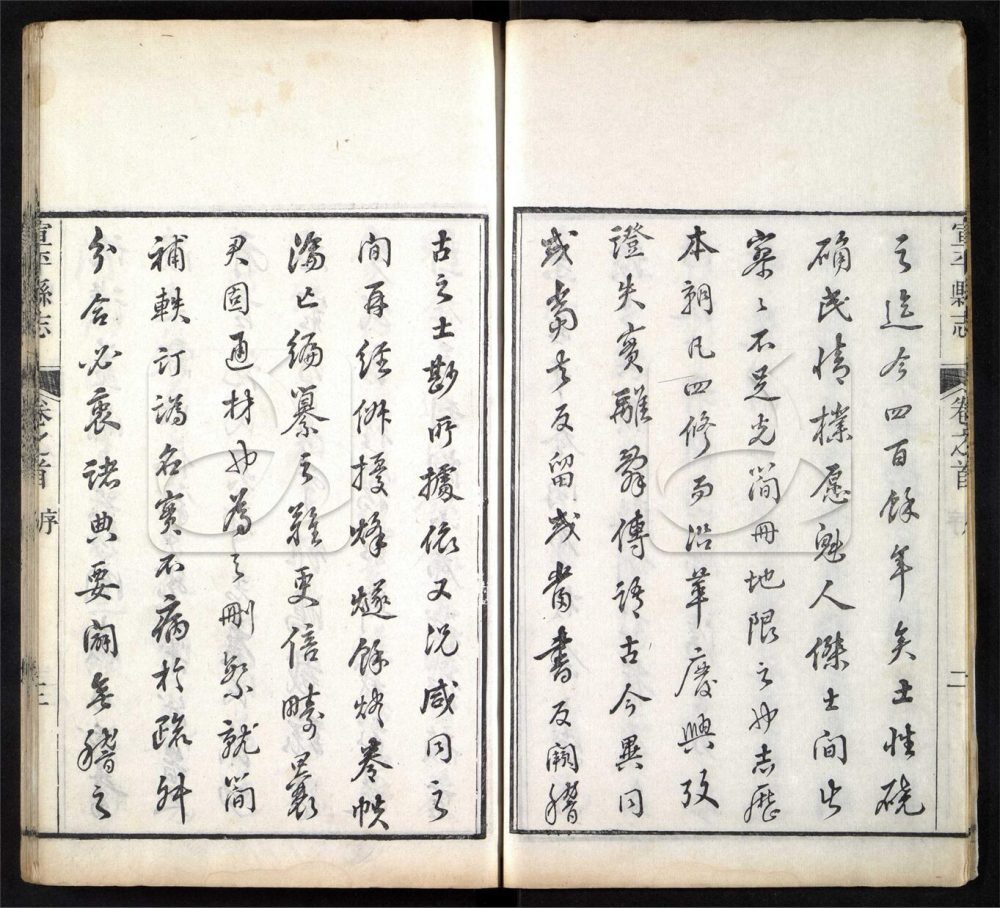 宣平縣志
卷之首
二
之迄今四百餘年矣土性磽
确民情樸愿魁人傑士間出
寥寥不足光簡冊地限之也志歷
本朝凡四修而沿革廢興攷
證失實離辭傳語古今異同
或當去反留或當書反闕稽
古之士尠所據依又況咸同之
間再經俶擾烽燧餘燼卷帙
蕩亡編纂之難更倍疇曩
君固通材也為之刪繁就簡
補軼訂譌名實不病於疏舛
分合必衷諸典要闕無稽之
宣平縣志
卷之首
序
三